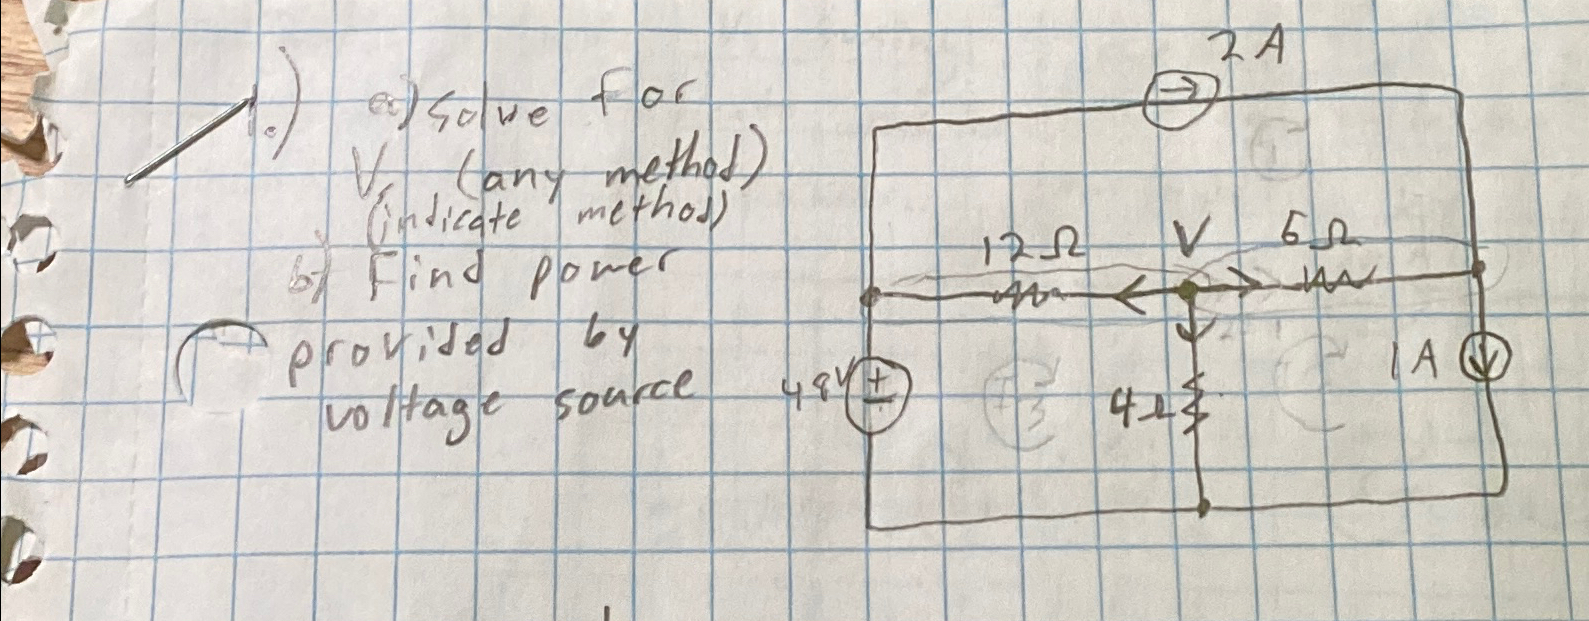 1.) a) solve for
V, (any method)
(indicate method)
b) Find power
provided by
voltage source
2 A
12Ω V 6Ω
48V + 4Ω 1 A